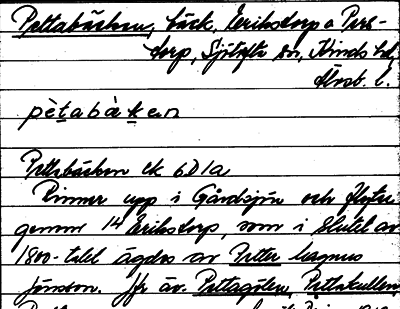 Pettabäcken, bäck, Eriksstorp o Pers-
torp, Sjötofta sn, Kinds hd,
Älvsb. l.
pètabàken
Pettabäcken ek 6D1a
Rinner upp i Gårdsjön och flyter
genom 14 Eriksstorp, som i slutet av
1800-talet ägdes av Petter Magnus
Jönsson. Jfr äv. Pettagölen, Pettakullen